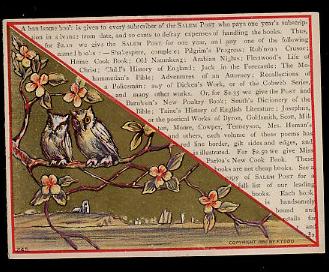 A han some boo'. is given to every subscriber of the SALEM POST who pays one year's subscrip-
tion in advance from date, and so extra to defray expenses of handling the books. Thus,
for $2.10 we give the SALEM POST for one year, and any one of the following
named b'o'ks :— Shakespeare, complete; Pilgrim's Progress; Robinson Crusoe;
Home Cook Book; Old Naumkeag; Arabian Nights; Fleetwood's Life of
Christ; Child's History of England; Jack in the Forecastle; The Mo-
hammedan's Bible; Adventures of an Attorney; Recollections of
Policeman; any of Dickens's Work, or of the Cobweb Series
and many other works. Or, for $2.35 we give the POST and
Barnham's New Poultry Book; Smith's Dictionary of the
Bible; Taine's History of English Literature; Josephus,
or the poetical Works of Byron, Goldsmith, Scott, Mil-
ton, Moore, Cowper, Tennyson, Mrs. Heman's
and others, each volume of these poems has
red line border, gilt sides and edges, and
is illustrated. For $2.50 we give Miss
Parloa's New Cook Book. These
books are net cheap books. See a
copy of SALEM POST for a
full list of our leading
books. Each book
is handsomely
bound and
details for
and
COPYRIGHT 1880 BY F.TODD